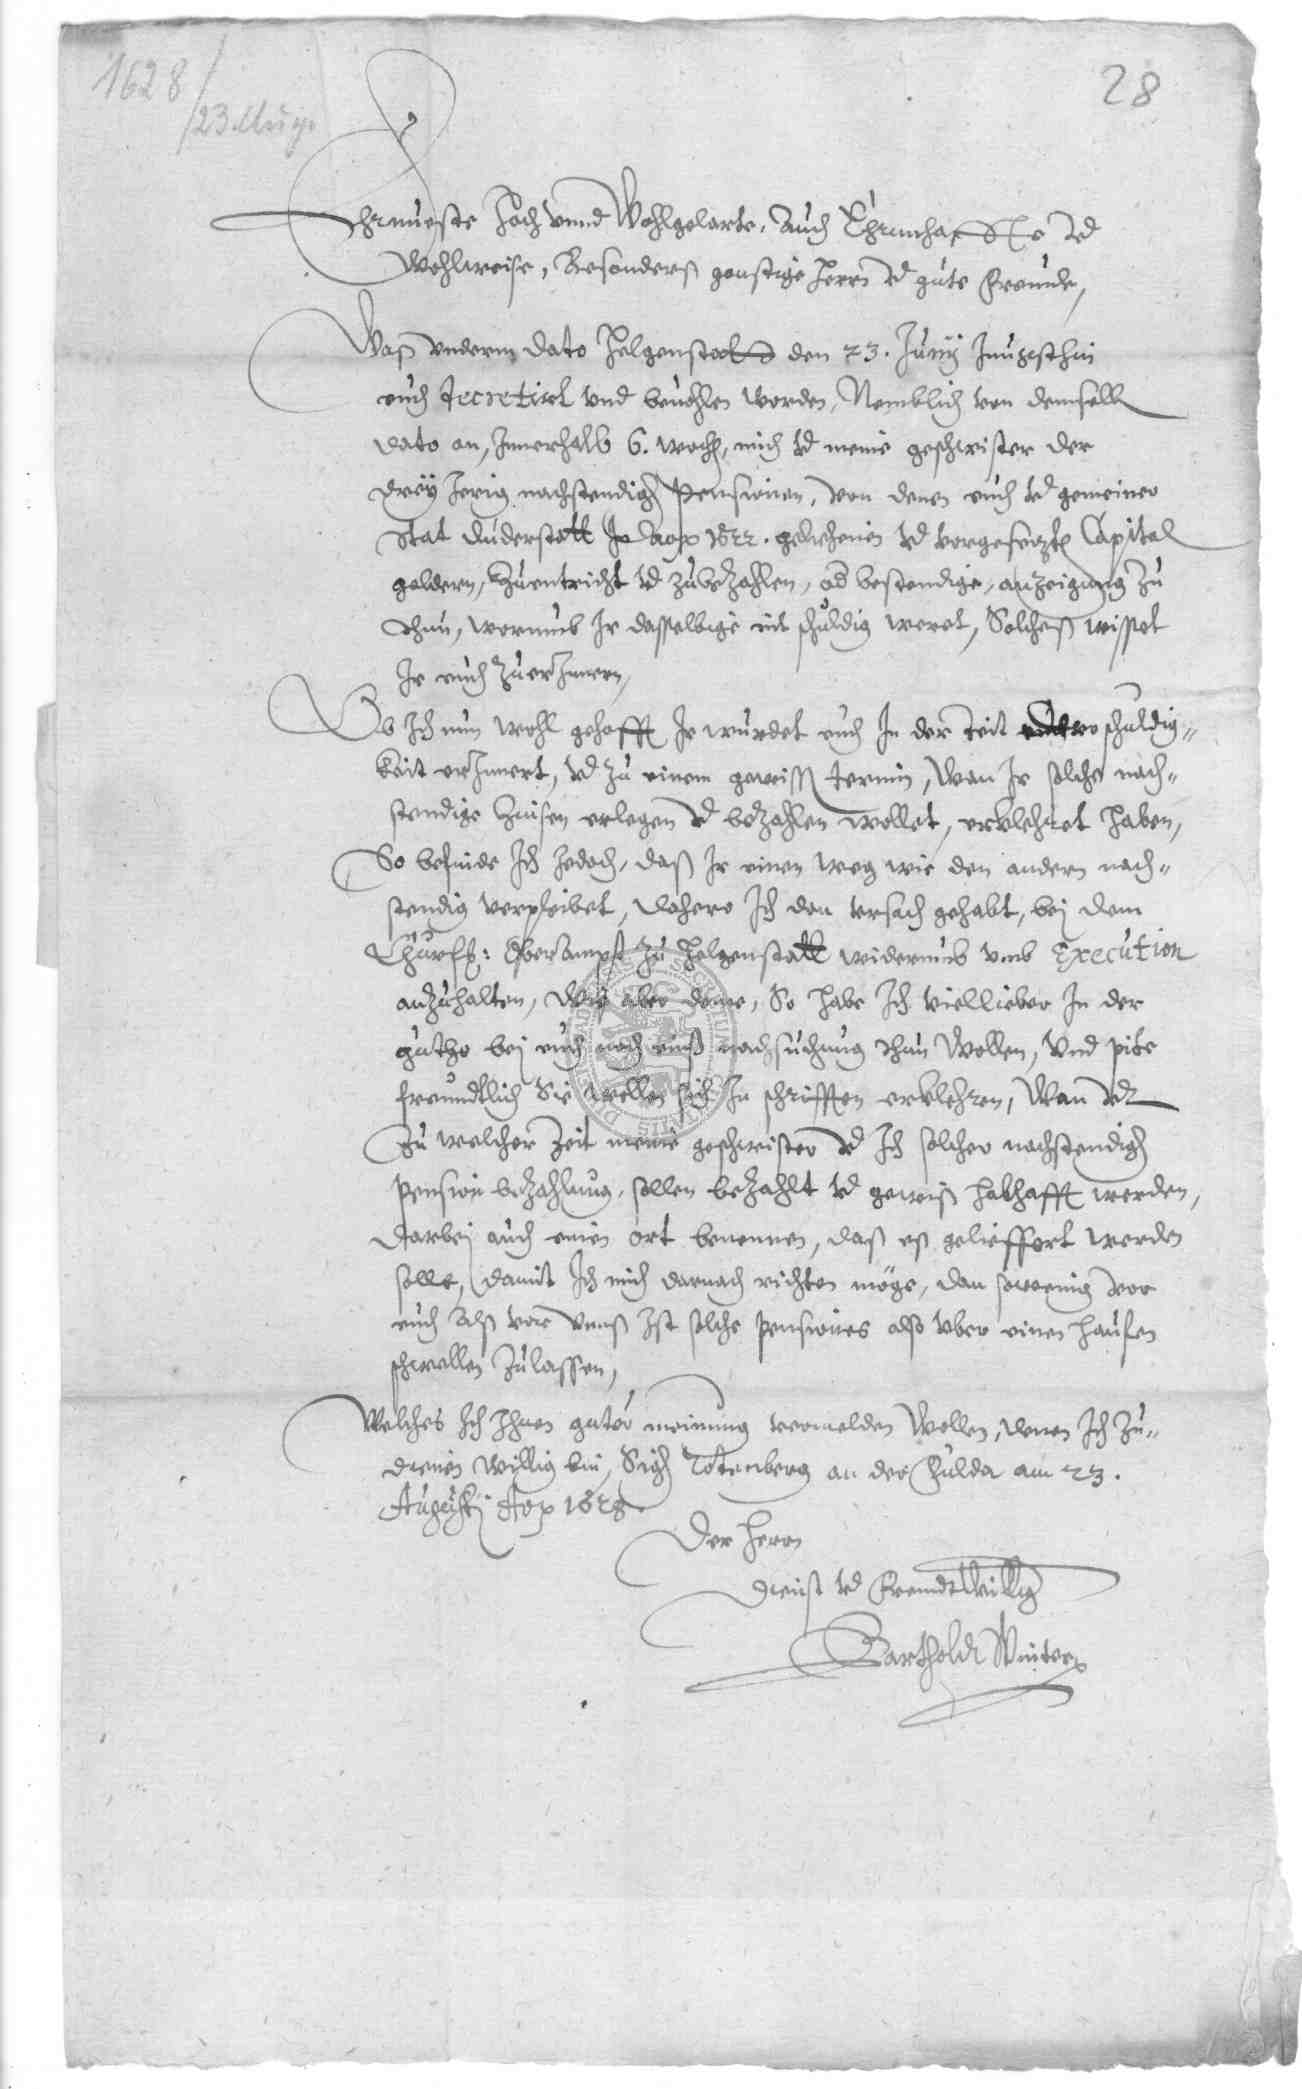 1628
23. Aug.
28
Ehrnueste Hoch vnnd Wohlgelarte, Auch Ehrnhaffte vnd
Wohlweise, Besonders gonstige Herrn vnd gute Freunde,
Waß vnderm dato Helgenstadt den 23. Junij Jnngsthin
euch decretirt vnd beuohlen worden, Nemblich von demselb
dato an, Jnnerhalb 6. woch, mich vnd meine geschwister der
dreÿ Jerig nachstendig Pensionen, von denen euch vnd gemeiner
Stat Duderstatt In Ao 1622. geliehenen vnd vorgesetzt Capital
geldern, Zuentricht vnd zubeZahlen, od bestendige anzeigung zu
thun, warumb Ir dasselbige nit schuldig weret, Solches wisset
Ir euch Zuer Jnnern,
Ob Ich nun wohl gehofft Ir wurdet euch In der Zeit schuldig-
keit er Jnnert, vnd zu einem gewiss termin, Wan Ir solche nach-
stendige Zinsen erlegen vnd beZahlen wollet, erklehret haben,
So befinde Ich Jedoch, daß Ir einen weg wie den andern nach-
stendig verpleibet, dahero Ich dan vrsach gehabt, bej dem
Churf: OberAmpt zu Helgenstatt widerumb vmb Execution
anzuhalten, Wie aber deme, So habe Ich viellieber In der
guthe bej euch noch einß nachsuchung thun wollen, Vnd pitte
freundtlich Sie wollen sich In schrifften erklehren, Wan vnd
Zu welcher Zeit meine geschwister vnd Ich solcher nachstendig
Pension beZahlung, sollen beZahlt vnd gewiß habhafft werden,
darbej auch einen ort benennen, daß es gelieffert werden
solle, damit Ich mich darnach richten möge, dan sowenig vor
euch Alß vor vnnß Ist solche Pensiones also vber einen hauffen
schwellen Zulassen,
Welches Ich Ihnen guter meinung vermelden Wollen, denen Ich Zu-
dienen willig bin, Sig Rotenberg an der Fulda am 23.
Augustj Ao 1628
Der Herrn
Dienst vnd Freundtwillig
Barthold Winter